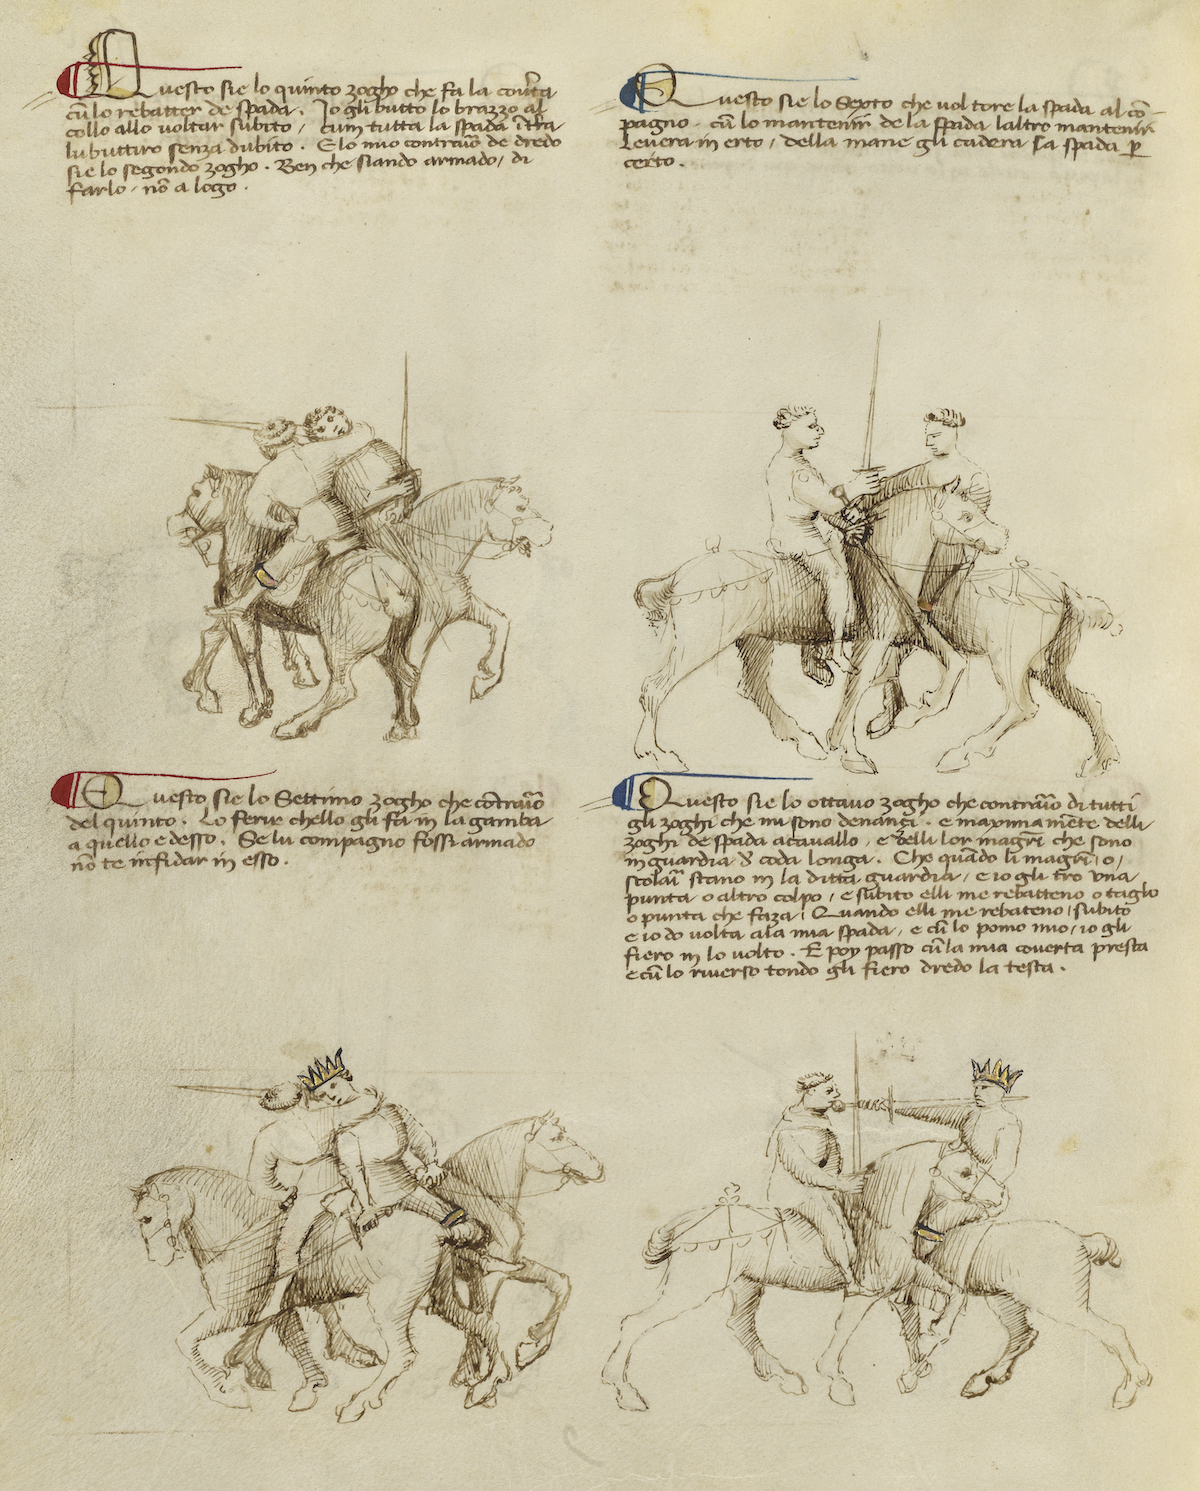 Questo sie lo quinto zogho che fa la cov̄ta
cū lo rebatter de spada. Io gli butto lo brazzo al
collo allo voltar subito, cum tutta la spada ī t̄ra
lu buttirò senza dubito. E lo mio contrario de dredo
sie lo segondo zogho. Ben che siando armado, di
farlo, nō a logo.
Questo sie lo Sexto che vol tore la spada al cō-
pagno. cū lo mantenir de la spada laltro mantenir
levera in erto, della mane gli cadera la spada p̲
certo.
Questo sie lo Settimo zogho che cōtrārio
del quinto. Lo ferir chello gli fa in la gamba
a quello e desso. Se lu compagno fossi armado
nō te infidar in esso.
Questo sie lo ottavo zogho che contrārio di tutti
gli zoghi che mi sono denançi. e maximamēte delli
zoghi de spada a cavallo, e delli lor magrī che sono
in guardia d̄ coda longa. Che quādo li magrī, o,
scolari stano in la ditta guardia, e io gli tro una
punta o altro colpo, e subito elli me rebatteno o taglo
o punta che faza, Quando elli me rebateno, subito
e io do volta ala mia spada, e cū lo pomo mio, io gli
fiero in lo volto. E poy passo cū la mia coverta presta
e cū lo riverso tondo gli fiero dredo la testa.